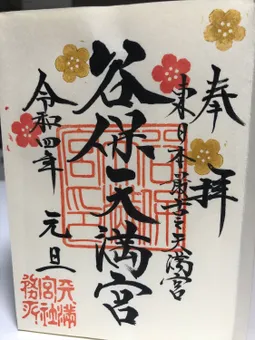 奉拝
東日本最古之天満宮
谷保天満宮
令和四年 元旦
天満
宮社
務所